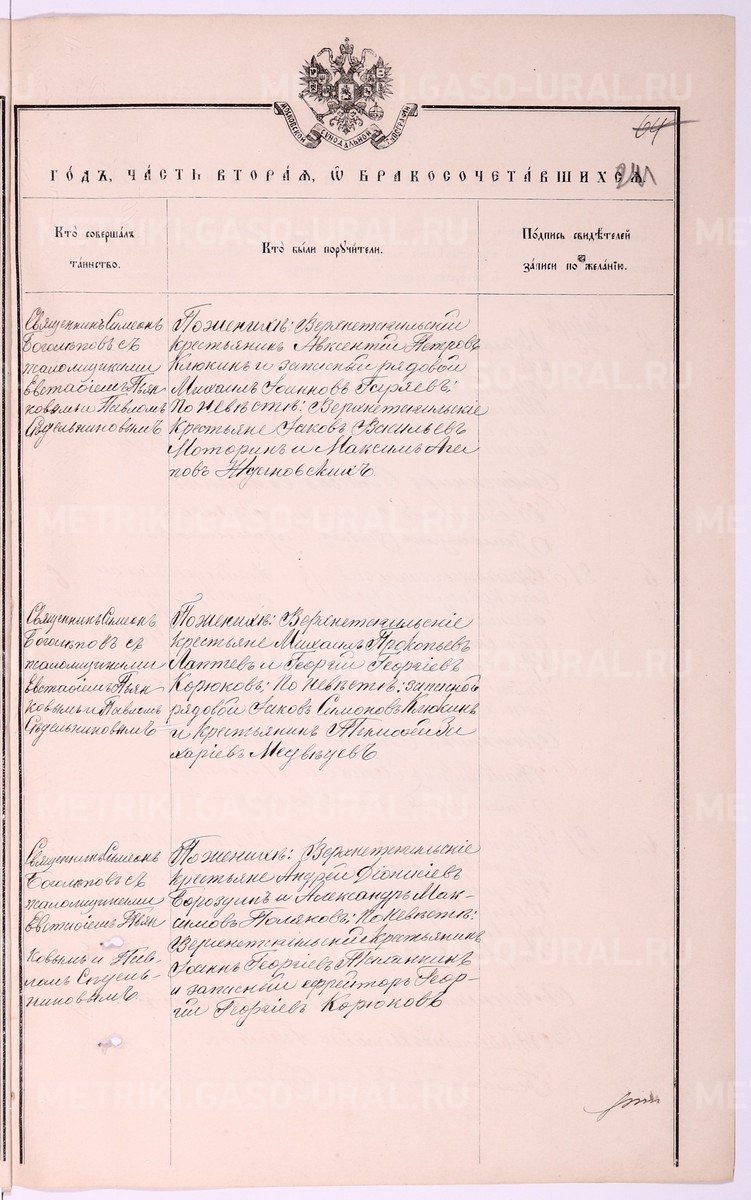 МОСКОВСКОЙ СѴНОДАЛЬНОЙ ТИПОГРАФІИ
64
241
ГО́ДЪ, ЧА́СТЬ ВТОРА́Я, Ѽ БРАКОСОЧЕТА́ВШИХСЯ.
Кто̀ соверша́лъ
та́инство.
Кто̀ бы́ли поручи́тели.
По́дпись свидѣ́телей
за́писи по жела́нію.
Священникъ Симеонъ
Боголюбовъ съ
псаломщиками
Евстаѳіемъ Пьян
ковымъ и Павломъ
Сѣдельниковымъ
По женихѣ: Верхнетагильскій
крестьянинъ Авксентій Петровъ
Клюкинъ и запасный рядовой
Михаилъ Іоанновъ Горяевъ;
По невѣстѣ: Верхнетагильскіе
крестьяне Іаковъ Васильевъ
Моторинъ и Максимъ Ага
повъ
Священникъ Симеонъ
Боголюбовъ съ
псаломщиками
Евстаѳіемъ Пьян
ковымъ и Павломъ
Сѣдельниковымъ
По женихѣ: Верхнетагильскіе
крестьяне Михаилъ Прокопьевъ
Лаптевъ и Георгій Георгіевъ
Корюковъ; По невѣстѣ: запасной
рядовой Іаковъ Симоновъ Клюкинъ
и крестьянинъ Тимофей За
харіевъ Медвѣдевъ
Священникъ Симеонъ
Боголюбовъ съ
псаломщиками
Евстаѳіемъ Пьян
ковымъ и Пав
ломъ Сѣдель
никовымъ
По женихѣ: Верхнетагильскіе
крестьяне Андрей Діонисіевъ
Бороздинъ и Александръ Мак-
симовъ Поляковъ; По невѣстѣ:
Верхнетагильскій крестьянинъ
Іоаннъ Георгіевъ
и запасный ефрейторъ Геор-
гій Георгіевъ Корюковъ
METRIKI.GASO-URAL.RU